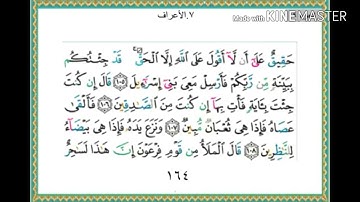 Made with KINEMASTER
٧.الأعراف
حَقِيقٌ عَلَىٰٓ أَن لَّآ أَقُولَ عَلَى ٱللَّهِ إِلَّا ٱلْحَقَّ ۚ قَدْ جِئْتُكُم
بِبَيِّنَةٍ مِّن رَّبِّكُمْ فَأَرْسِلْ مَعِىَ بَنِىٓ إِسْرَٰٓءِيلَ ١٠٥ قَالَ إِن كُنتَ
جِئْتَ بِـَٔايَةٍ فَأْتِ بِهَآ إِن كُنتَ مِنَ ٱلصَّـٰدِقِينَ ١٠٦ فَأَلْقَىٰ
عَصَاهُ فَإِذَا هِىَ ثُعْبَانٌ مُّبِينٌ ١٠٧ وَنَزَعَ يَدَهُۥ فَإِذَا هِىَ بَيْضَآءُ
لِلنَّـٰظِرِينَ ١٠٨ قَالَ ٱلْمَلَأُ مِن قَوْمِ فِرْعَوْنَ إِنَّ هَـٰذَا لَسَـٰحِرٌ
١٦٤